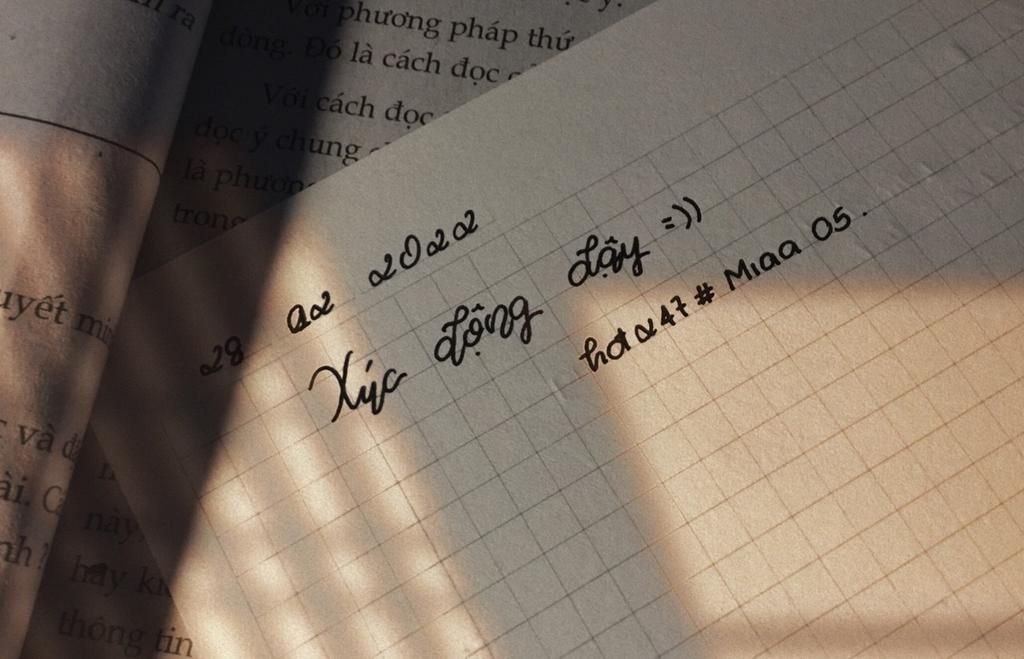 n ra
Với phương pháp thứ
dòng. Đó là cách đọc
Với cách đọc
đọc ý chung
là phươn
trong
28 02 2022
Xúc động đậy =))
hdα47# Mıaa 05.
uyết mi
và đ
ài. C
này
nh?
hãy k
thông tin